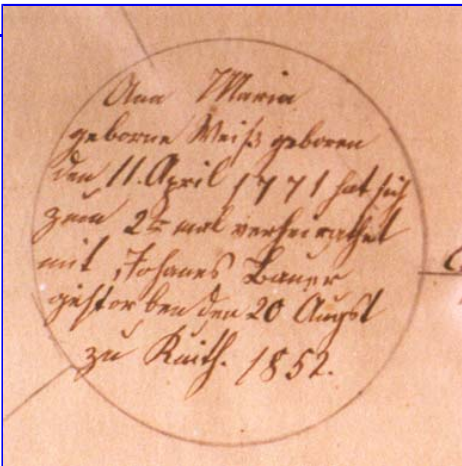 Ana Maria
geborne Weiß geboren
den 11. April 1771 hat sich
zum 2t mal verheirathet
mit Johanes Bauer
gestorben den 20 Augst
zu 1852.